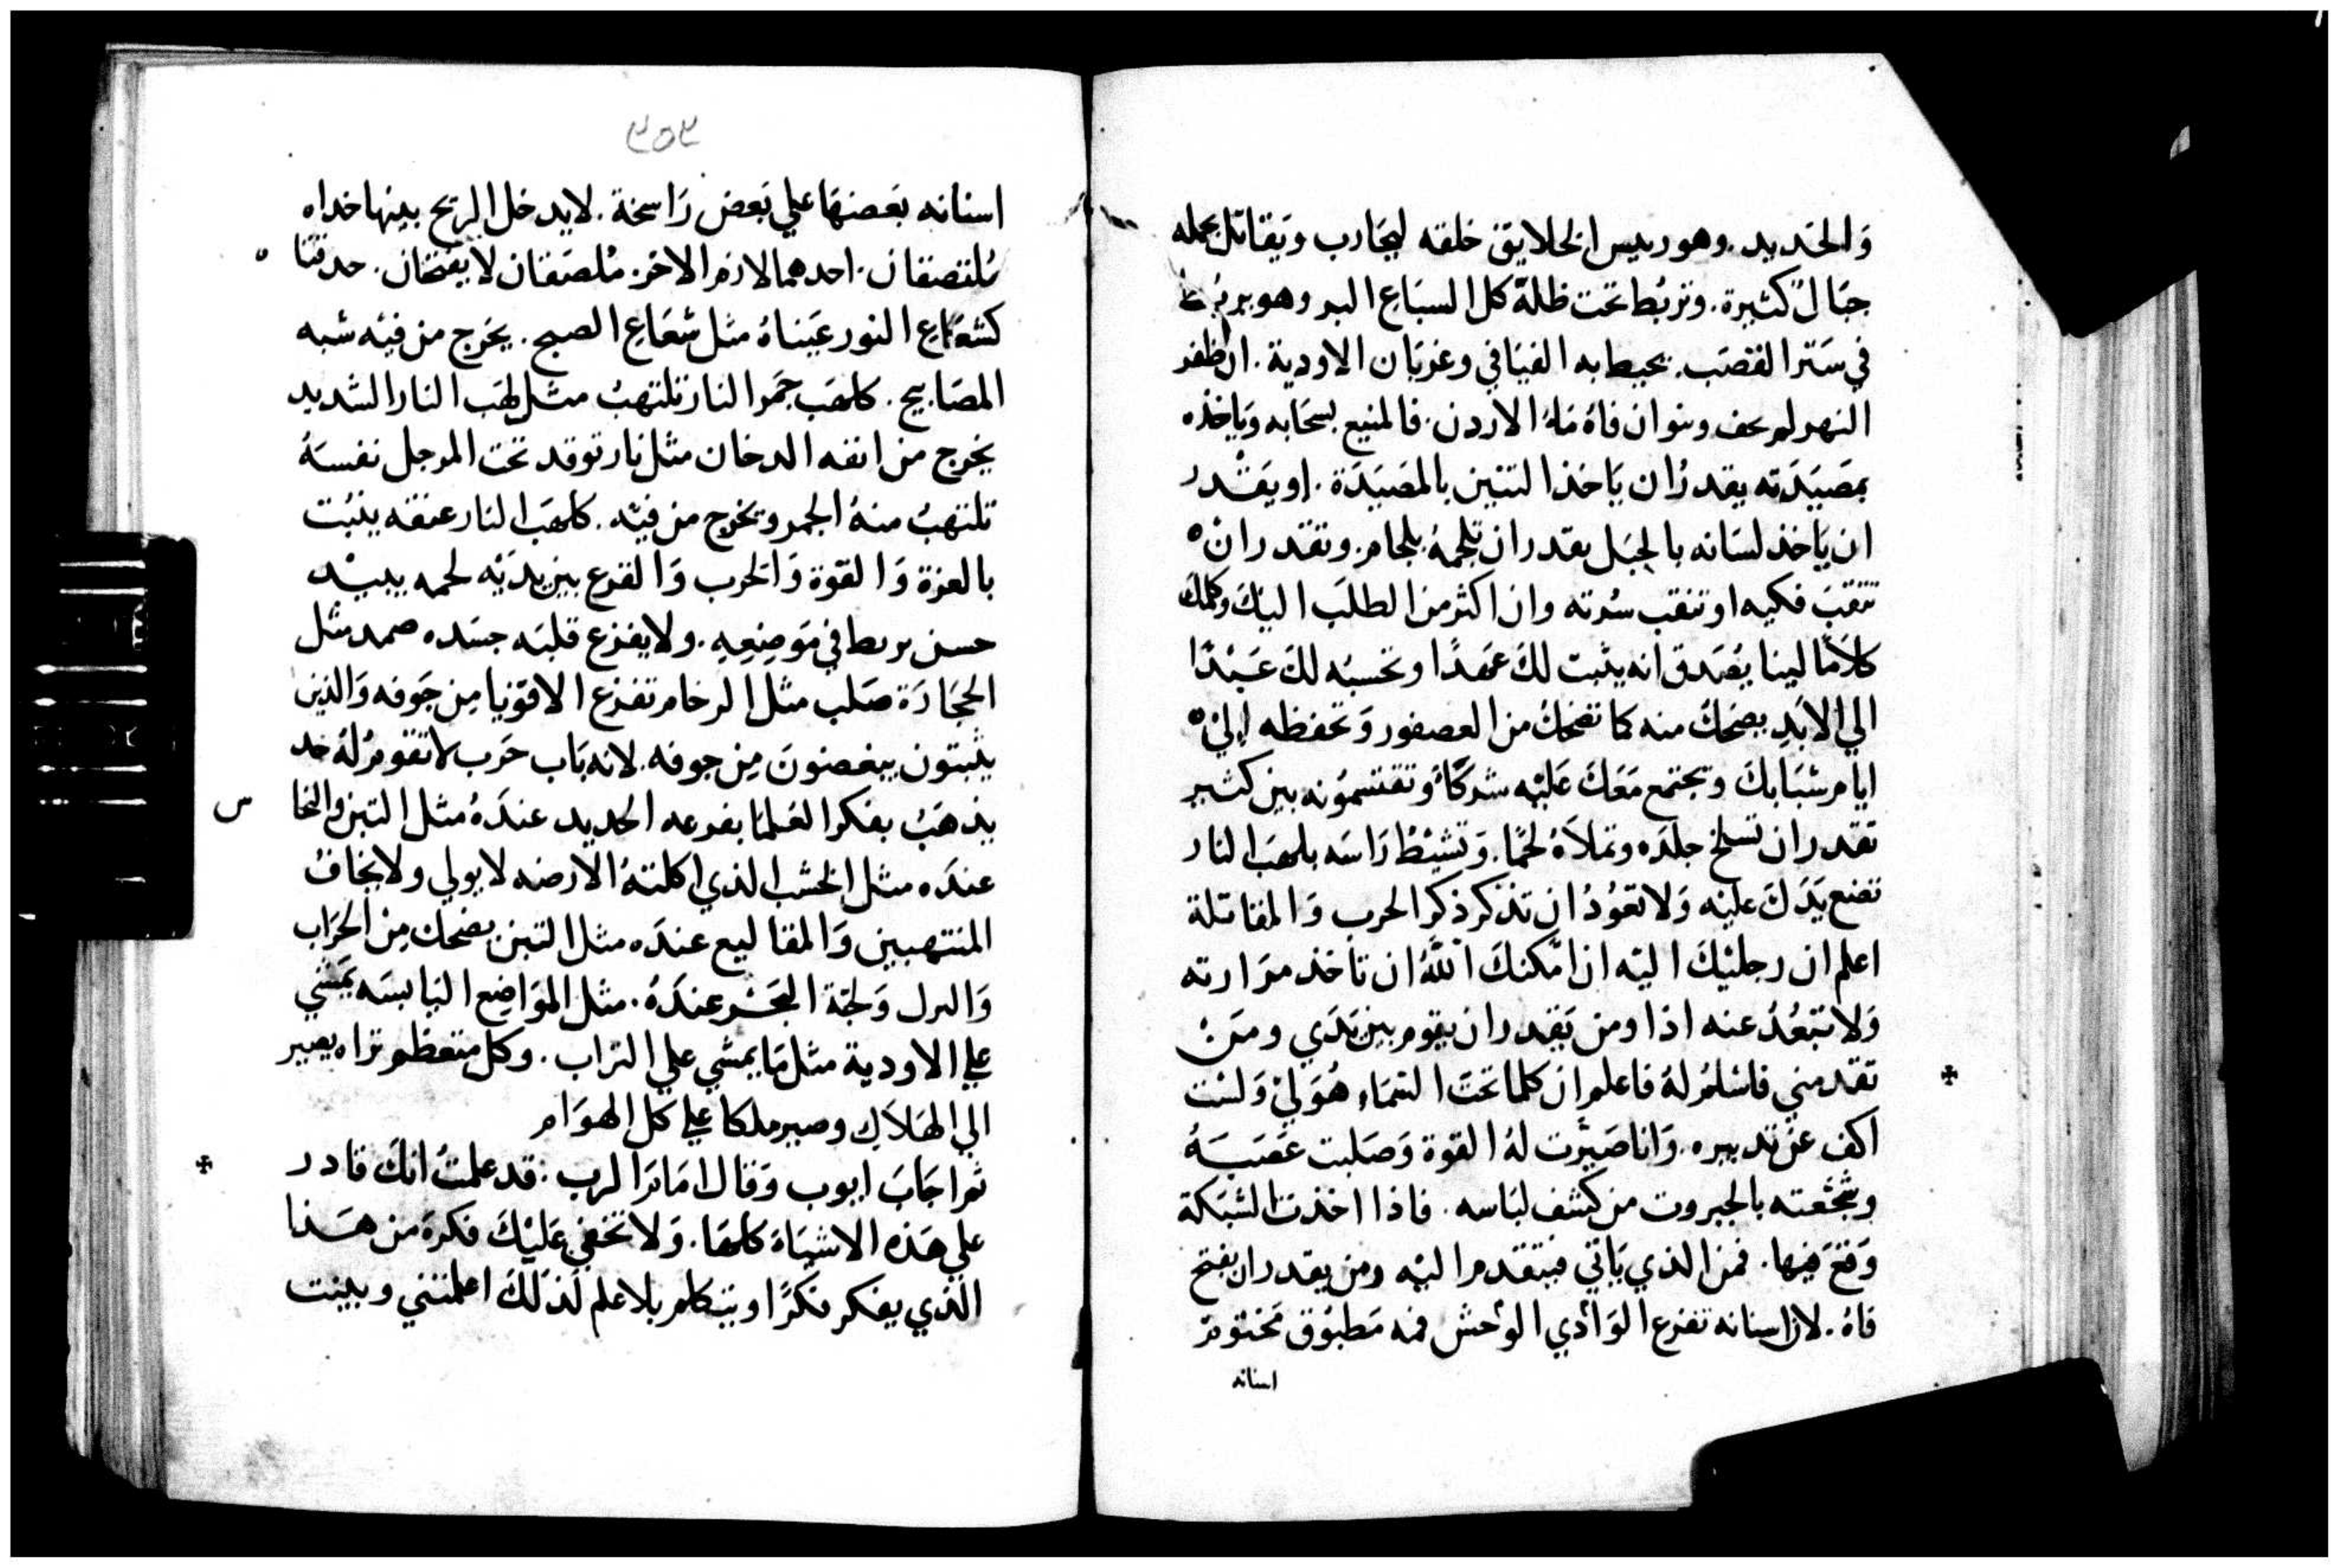 وَالحَديد. وهو ريس الخلايق خلقه ليحَارب ويَقاتل بحمله
جبَالٌ كثيرة. وتربُط تحت ظلة كل السبَاع البر وهو يربُط
في سَتر القصَب. يحيط به الفيَافي وغربَان الاودية. ان ظفر
النهر لم يخف وينوا ان فاهُ مَاءُ الاردن. فالمنيع بسحَابه ويَاخذه
بمصَيَدَته يقدرُ ان يَاخذ التنين بالمصَيَدَة. او يقْدر
ان يَاخذ لسَانه بالحبَل يقدر ان تلجمهُ بلجام. وتقدر انْ
تنقبَ فكيه او تنقب سُرته وان اكثر من الطلَب اليكَ وكلمكَ
كلامًا لينا يصَدق انه يثبت لكَ عَهدًا وتحسبُه لكَ عَبْدًا
الي الابَدِ يضحَكُ منه كما تضحَكُ من العصفور وَتحفظه اليْ
ايام شبَابكَ وتجتمع مَعَكَ عَليْه شركَاءُ وتقتسموُنه بين كثير
تقدر ان تسلخ جلدَه وتملاهُ لحمًا. وَتشيْطُ رَاسَه بلهَب النار
تضع يَدَكَ عليْه وَلا تعوُدُ ان تذكر ذكر الحرب وَالمقاتلة
اعلم ان رجليْكَ اليْه ان امكنكَ اللهُ ان تاخذ مرَارته
وَلا تبَعُدُ عنه اذا ومن يَقدر ان يقوم بين يَدَي ومَنْ
تقدمني فاسْلمُ لهُ فاعلم ان كلما تحَتَ السَمَاءِ هُوَ ليْ وَلسْت
اكف عن تدبيره. وَانا صَيرت لهُ القوة وَصَلبت عَصَبَهُ
وشجعته بالجبروت من كشف لبَاسه. فاذا اخذت الشبَكة
وَقعَ فيها. فمن الذي يَاتي فيتقدم اليْه ومن يقدر ان يفتح
فاهُ. لان اسنانه تفزع الوَادي الوُحش فمه مَطبوُق مختومٌ
اسنانه
٣٥٢
اسنانه بَعضهَا علي بَعض رَاسخة. لا يدخل الريح بينها خداه
مُلتصقان. احدهما لازم الاخر. مُلصَقان لا يفتحان. حدقتا
كشعَاع النور عَيناهُ مثل شعَاع الصبح. يخَرج من فيْه شبه
المصَابيح. كلهَب جمَر النار تلتهبُ مثل لهَب النار الشديد
يخرج من انفه الدخان مثل نار توقد تحت المرجل نفسَهُ
تلتهبُ منهُ الجمر ويخرج من فيْه. كلهَب النار عنقه يثبُت
بالعزة وَالقوة وَالحرب وَالفزع بين يدَيْه لحمه يديْه
حسن يربط في مَوضِعِهِ. ولا يفزع قلبَه جسَده صمد مثل
الحجَارَة صَلب مثل الرخام تفزع الاقوَيا مِن جَوفه وَالذين
يثبتون يبغضونَ مِن جوفه. لانه بَاب حَرب لا تقومُ لهُ حد
يذهَبُ بفكر العُلمَا بفرعه الحديد عندَهُ مثل التبن والنحا
س
عندَه مثل الخشب الذي اكلتهُ الارضه لا يولي ولا يخافُ
المنتهبين وَالمقاليع عندَه مثل التبن يضحك مِن الحرَاب
وَالبرل وَلجة البَحَر عندَهُ. مثل الموَاضِع اليَابسَه يمَشي
علي الاودية مثل مَا يمشي علي التراب. وكل متعظم تراه يصير
الي الهَلاك وصير ملكا علي كل الهوَام
ثم اجَابَ ايوب وَقال امَامَ الرب: قد علمتُ انكَ قادر
علي هَذه الاشيَاءَ كلهَا. وَلا تخفي عَليْكَ فكرَة من هَذا
الذي يفكر فكرًا ويتكلم بلا علم لذلكَ اعلمتني وبينت